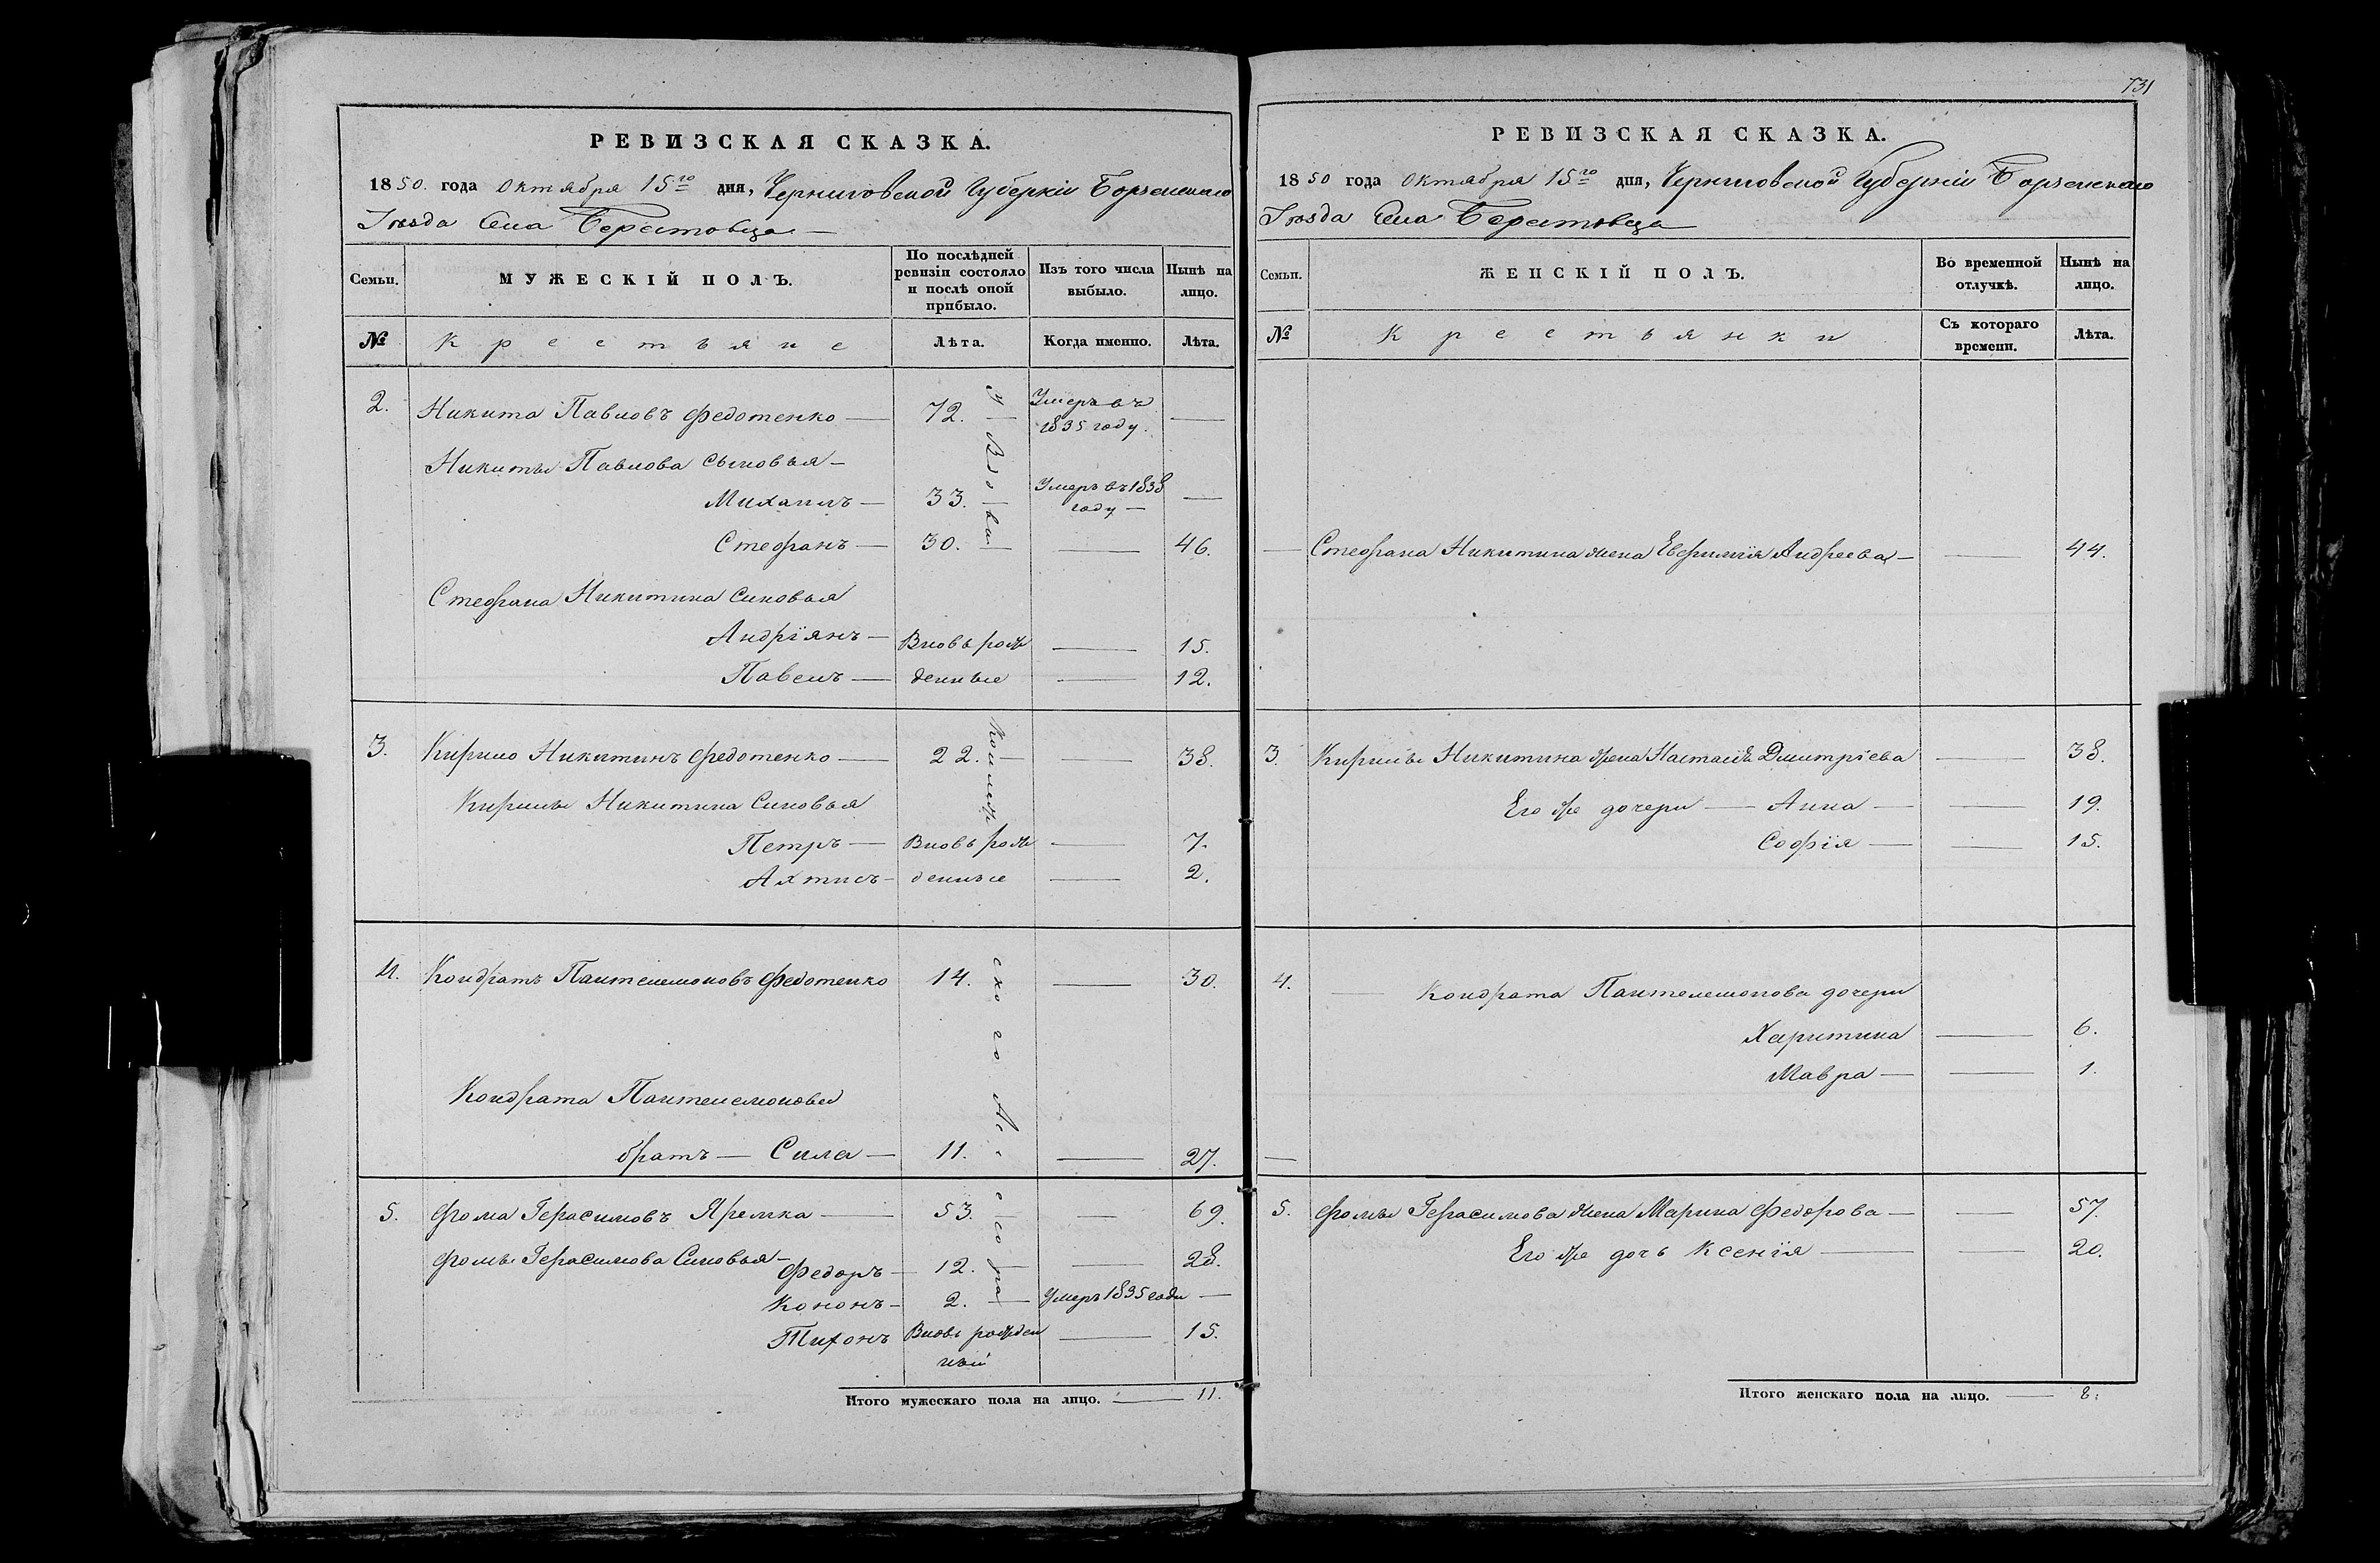 РЕВИЗСКАЯ СКАЗКА.
1850. года Октября 15го дня, Черниговской Губерніи Борзенскаго
Уѣзда Села Берестовца
Семьи.
МУЖЕСКІЙ ПОЛЪ.
По послѣдней ревизіи состояло и послѣ оной прибыло.
Изъ того числа выбыло.
Нынѣ на лицо.
№
Крестьяне
Лѣта.
Когда именно.
Лѣта.
2. Никита Павловъ Федотенко — 72. — Умеръ въ 1835 году. —
Никиты Павлова сыновья —
Михаилъ — 33. — Умеръ въ 1838 году — —
Стефанъ — 30. — — 46.
Стефана Никитина Синовья
Андріянъ — Вновь рож — 15.
Павелъ — денные — 12.
3. Кирило Никитинъ Федотенко — 22. — — 38.
Кирилы Никитина Синовья
Петръ — Вновь рож — 7.
Ахтисъ — денные — 2.
4. Кондратъ Пантелемоновъ Федотенко 14. — 30.
Кондрата Пантелемонова
братъ — Сила — 11. — 27.
5. Фома Герасимовъ Яремка — 53. — — 69.
Фомы Герасимова Синовья —
Федоръ — 12. — — 28.
Кононъ — 2. — Умеръ 1835 года —
Тихонъ Вновь рожден — 15.
ный
Итого мужескаго пола на лицо. — 11.
731
РЕВИЗСКАЯ СКАЗКА.
1850 года Октября 15го дня, Черниговской Губерніи Борзенскаго
Уѣзда Села Берестовца
Семьи.
ЖЕНСКІЙ ПОЛЪ.
Во временной отлучкѣ.
Нынѣ на лицо.
№
Крестьянки
Съ котораго времени.
Лѣта.
— Стефана Никитина жена Евфимія Андреева — — 44.
3. Кирилы Никитина жена Настасія Дмитріева — 38.
Его же дочери — Анна — — 19.
Софія — — 15.
4. — Кондрата Пантелемонова дочери
Харитина — 6.
Мавра — — 1.
5. Фомы Герасимова жена Марина Федорова — — 57.
Его же дочь Ксенія — — 20.
Итого женскаго пола на лицо. — 8.